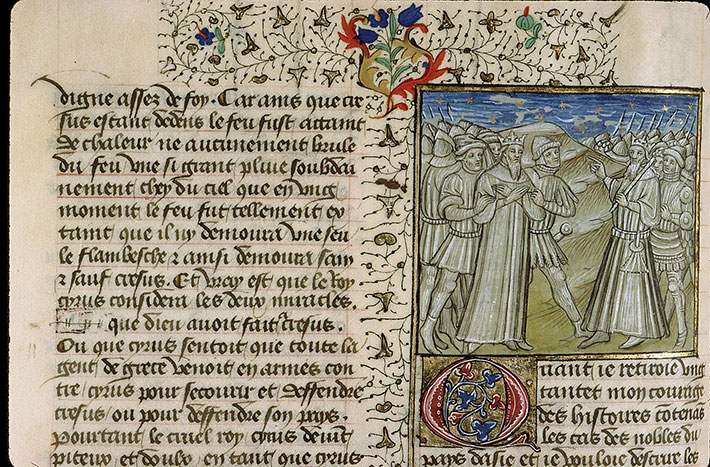 digne assez de foy. Car ains que cre
sus estant dedens le feu fust attaint
de chaleur ne aucunement brule
du feu vne si grant pluie soubdai
nement chey du ciel que en vng
moment le feu fut tellement ex
taint que il ny demoura vne seu
le flambesche & ainsi demoura sain
& sauf cresus. Et vray est que le Roy
cyrus considera les deux miracles.
que dieu auoit fait a cresus.
Ou que cyrus sentoit que toute la
gent de grece venoit en armes con
tre cyrus pour secourir et deffendre
cresus / ou pour deffendre son pays.
pourtant le cruel roy cyrus deuint
piteux et doulx / en tant que cyrus
Quant ie retiroie vng
tantet mon courage
des histoires cotenās
les cas des nobles du
pays dasie et ie vouloie descrire les